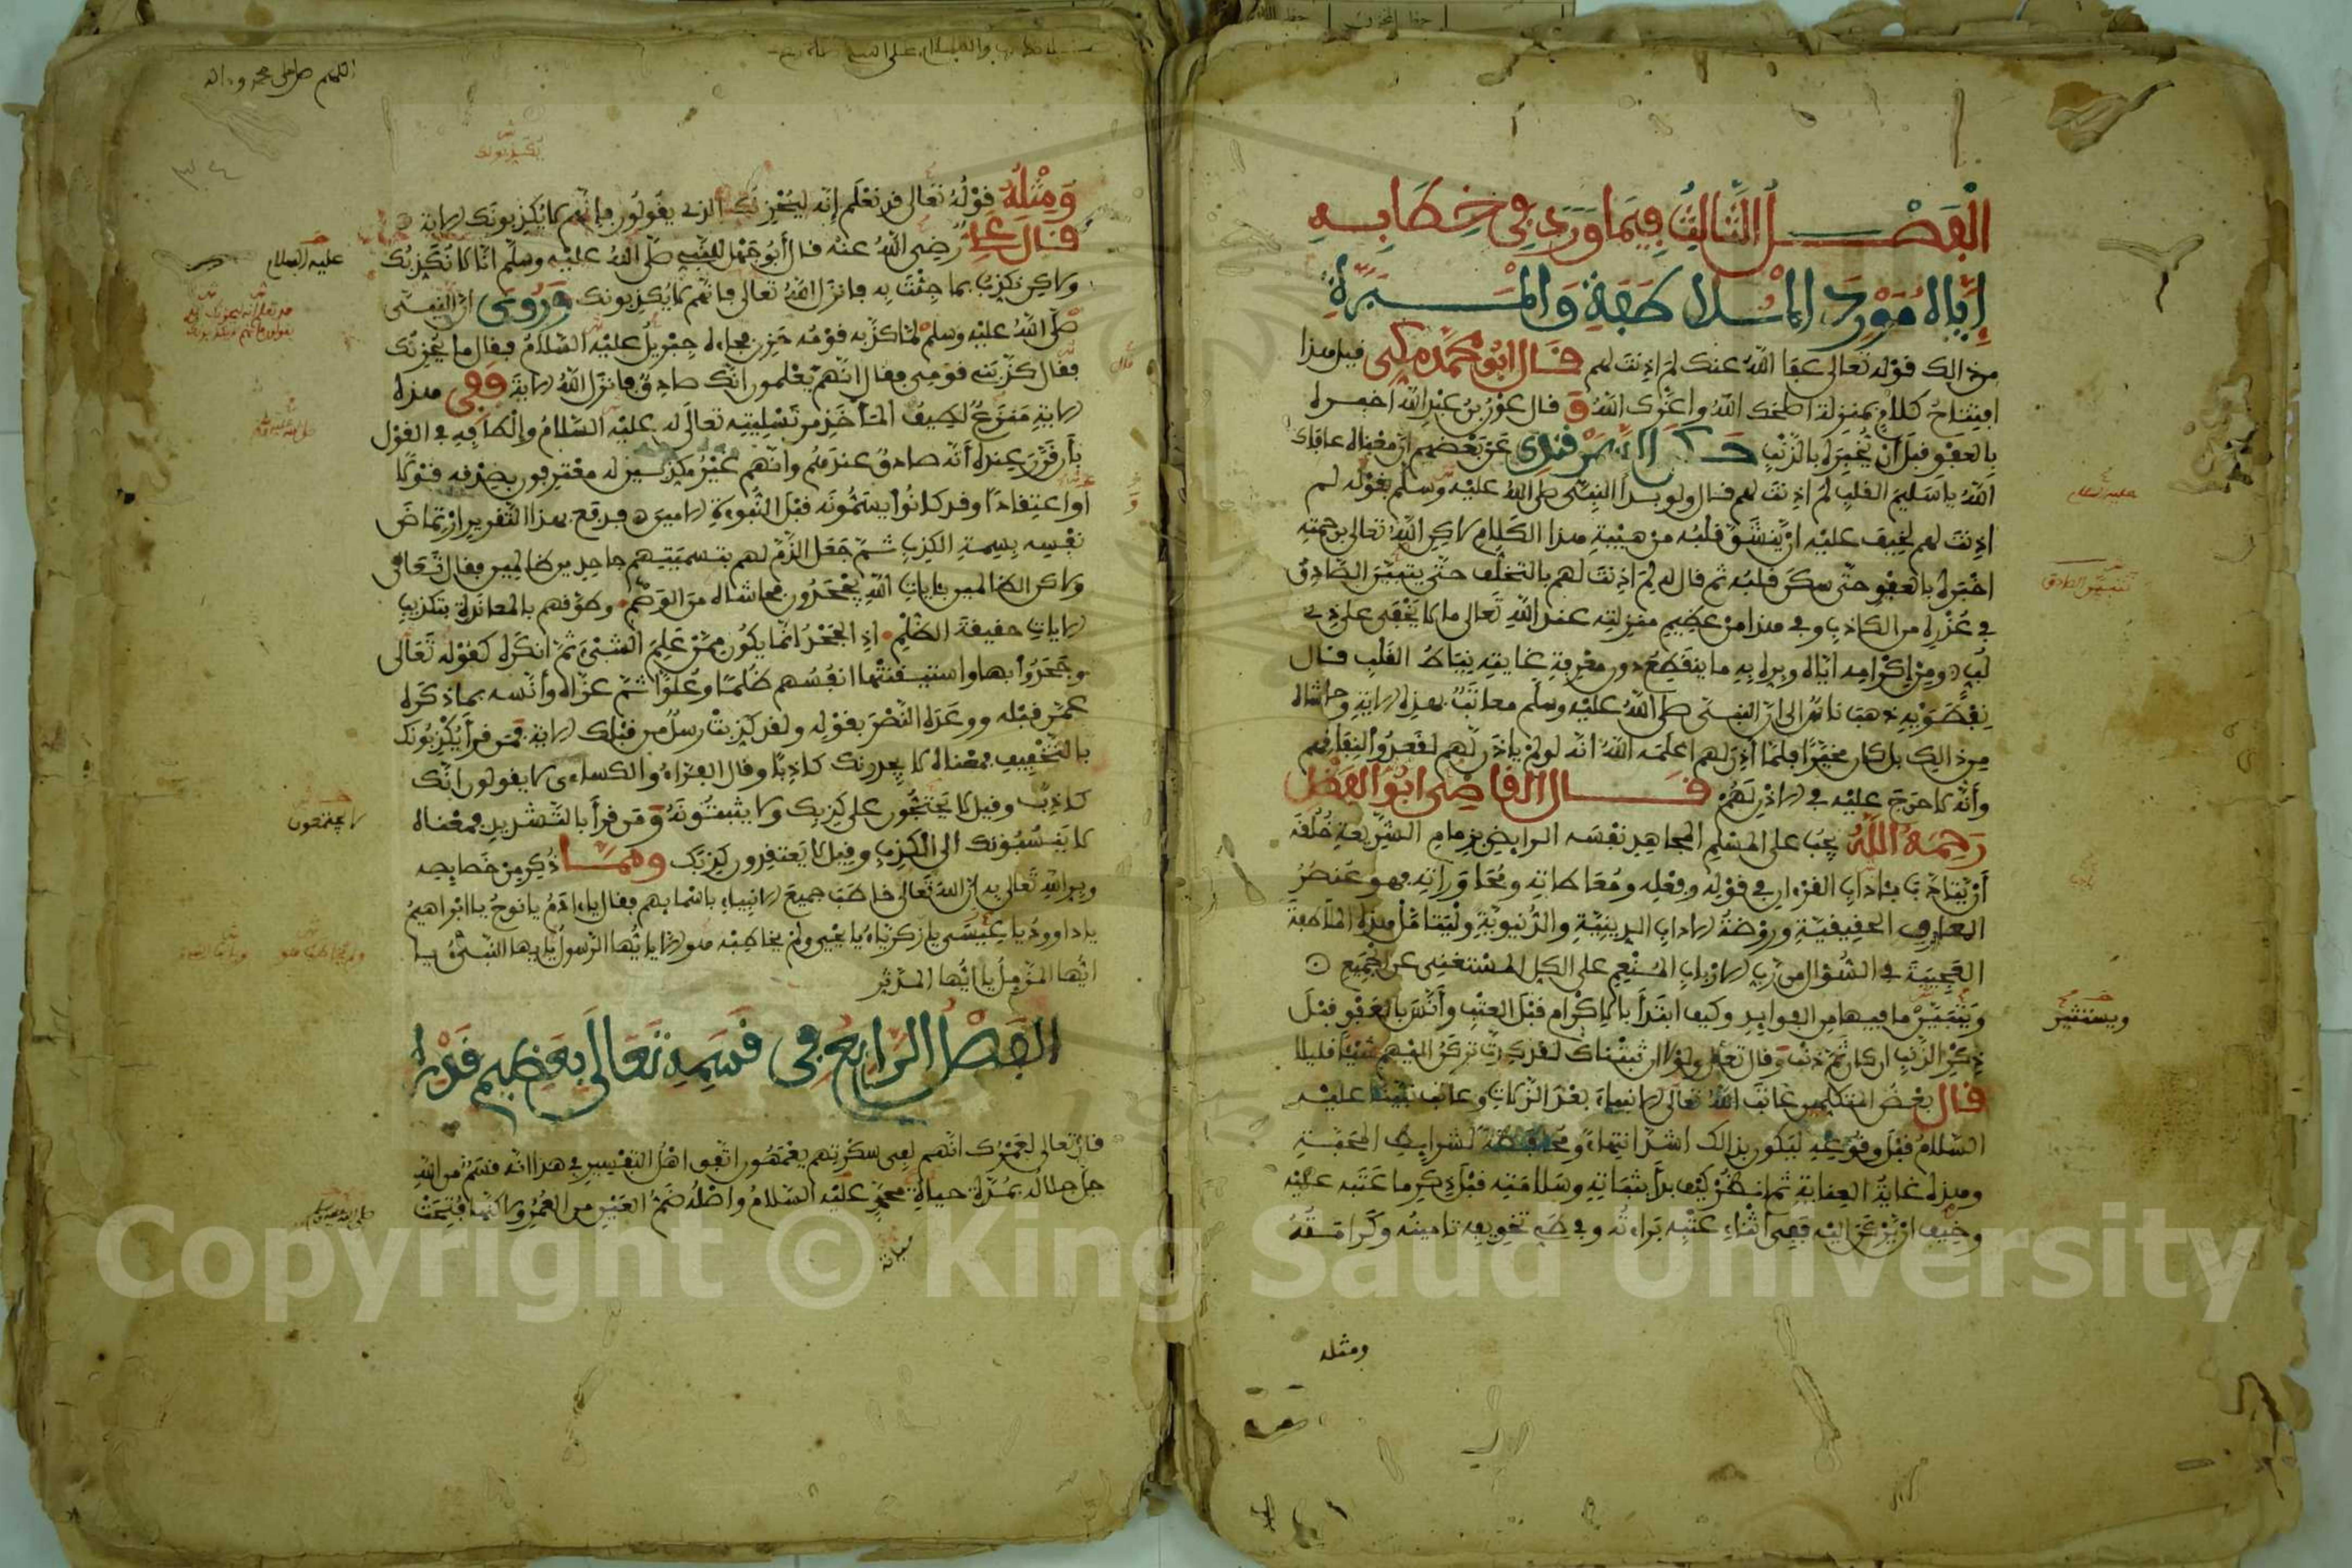 الْفَصْل الثَّالِثُ فِيمَا وَرَدَ فِي خِطَابِهِ
إِيَّاهُ مَوْرِدَ الْمُلَاطَفَةِ وَالْمَبَرَّةِ
من ذالك قوله تعالى عفا الله عنك لم اذنت لهم قال ابو محمد مكي قيل هذا
افتتاح كلام بمنزلة اصلحك الله واعزك الله و قال عون بن عبد الله اخبره
بالعفو قبل أن يخبره بالذنب حكى السمرقندي عن بعضهم ان معناه عافاك
الله يا سليم القلب لم اذنت لهم قال ولو بدأ النبي صلى الله عليه وسلم بقوله لم
اذنت لهم لخيف عليه ان ينشق قلبه من هيبة هذا الكلام لاكن الله تعالى برحمته
اخبره بالعفو حتى سكن قلبه ثم قال له لم اذنت لهم بالتخلف حتى يتبين الصادق
في عذره من الكاذب وفي هذا من عظيم منزلته عند الله تعالى ما لا يخفى على ذي
لب ومن إكرامه اياه وبره به ما ينقطع دون معرفة غايته نياط القلب قال
نفطويه ذهب ناس الى ان النبي صلى الله عليه وسلم معاتب بهذه الاية وحاشاه
من ذالك بل كان مخيرا فلما أذن لهم اعلمه الله انه لو لم ياذن لهم لقعدوا لنفاقهم
وأنه لا حرج عليه في الاذن لهم قال القاضي ابو الفضل
رحمه الله يجب على المسلم المجاهد نفسه الرايض بزمام الشريعة خلقه
أن يتادب بئاداب القرءان في قوله وفعله ومعاطاته ومحاوراته فهو عنصر
المعارف الحقيقية وروضة الاداب الدينية والدنيوية وليتامل هذه الملاطفة
العجيبة في السؤال من رب الارباب المنعم على الكل المستغني عن الجميع
ويتبين ما فيها من الفوايد وكيف ابتدأ بالاكرام قبل العتب وأنس بالعفو قبل
ذكر الذنب ان كان ثم ذنب وقال تعالى ولولا ان ثبتناك لقد كدت تركن اليهم شيئا قليلا
قال بعض المتكلمين عاتب الله تعالى الانبياء بعد الزلات وعاتب نبينا عليه
السلام قبل وقوعه ليكون بذالك اشد انتهاء ومحافظة لشرايط المحبة
وهذه غاية العناية ثم انظر كيف بدأ بثباته وسلامته قبل ذكر ما عتبه عليه
وخيف ان يركن اليه ففي أثناء عتبه براءته وفي طي تخويفه تامينه وكرامته
ومثله
عليه السلام
ويستثير
اللهم صل على محمد وءاله
٣٠٤
ومثله قوله تعالى قد نعلم إنه ليحزنك الذي يقولون فإنهم لا يكذبونك الاية
قال علي رضي الله عنه قال أبو جهل للنبي صلى الله عليه وسلم انا لا نكذبك
ولاكن نكذب بما جئت به فانزل الله تعالى فانهم لا يكذبونك وروي ان النبي
صلى الله عليه وسلم لما كذبه قومه حزن فجاءه جبريل عليه السلام فقال ما يحزنك
فقال كذبني قومي فقال انهم يعلمون انك صادق فانزل الله الاية ففي هذه
الاية منزع لطيف المأخذ من تسليته تعالى له عليه السلام والطافه في القول
بأن قرر عنده أنه صادق عندهم وانهم غير مكذبين له معترفون بصدقه قولا
واعتقادا وقد كانوا يسمونه قبل النبوءة الامين فدفع بهذا التقرير ارتماض
نفسه بسمة الكذب ثم جعل الذم لهم بتسميتهم جاحدين ظالمين فقال تعالى
ولاكن الظالمين بئايات الله يجحدون فحاشاه من الوصم وطوقهم بالمعاندة بتكذيب
الايات حقيقة الظلم اذ الجحد انما يكون ممن علم الشيء ثم انكره كقوله تعالى
وجحدوا بها واستيقنتها انفسهم ظلما وعلوا ثم عزاه وأنسه بما ذكره
عمن قبله ووعده النصر بقوله ولقد كذبت رسل من قبلك الاية فمن قرأ يكذبونك
بالتخفيف فمعناه لا يجدونك كاذبا وقال الفراء والكساءي لا يقولون انك
كاذب وقيل لا يحتجون على كذبك ولا يثبتونه ومن قرأ بالتشديد فمعناه
لا ينسبونك الى الكذب وقيل لا يعتقدون كذبك ومما ذكر من خصايصه
وبر الله تعالى به ان الله تعالى خاطب جميع الانبياء باسمايهم فقال ياءادم يا نوح يا ابراهيم
يا داوود يا عيسى يا زكرياء يا يحيى ولم يخاطبه هو الا يا ايها الرسول يا ايها النبي يا
ايها المزمل يا ايها المدثر
الفصل الرابع في قسمه تعالى بعظيم قدره
قال تعالى لعمرك انهم لفي سكرتهم يعمهون اتفق اهل التفسير في هذا انه قسم من الله
جل جلاله بمدة حياة محمد عليه السلام واصله ضم العين من العمر ولاكنها فتحت
عليه السلام
صلى الله عليه وسلم
Copyright © King Saud University